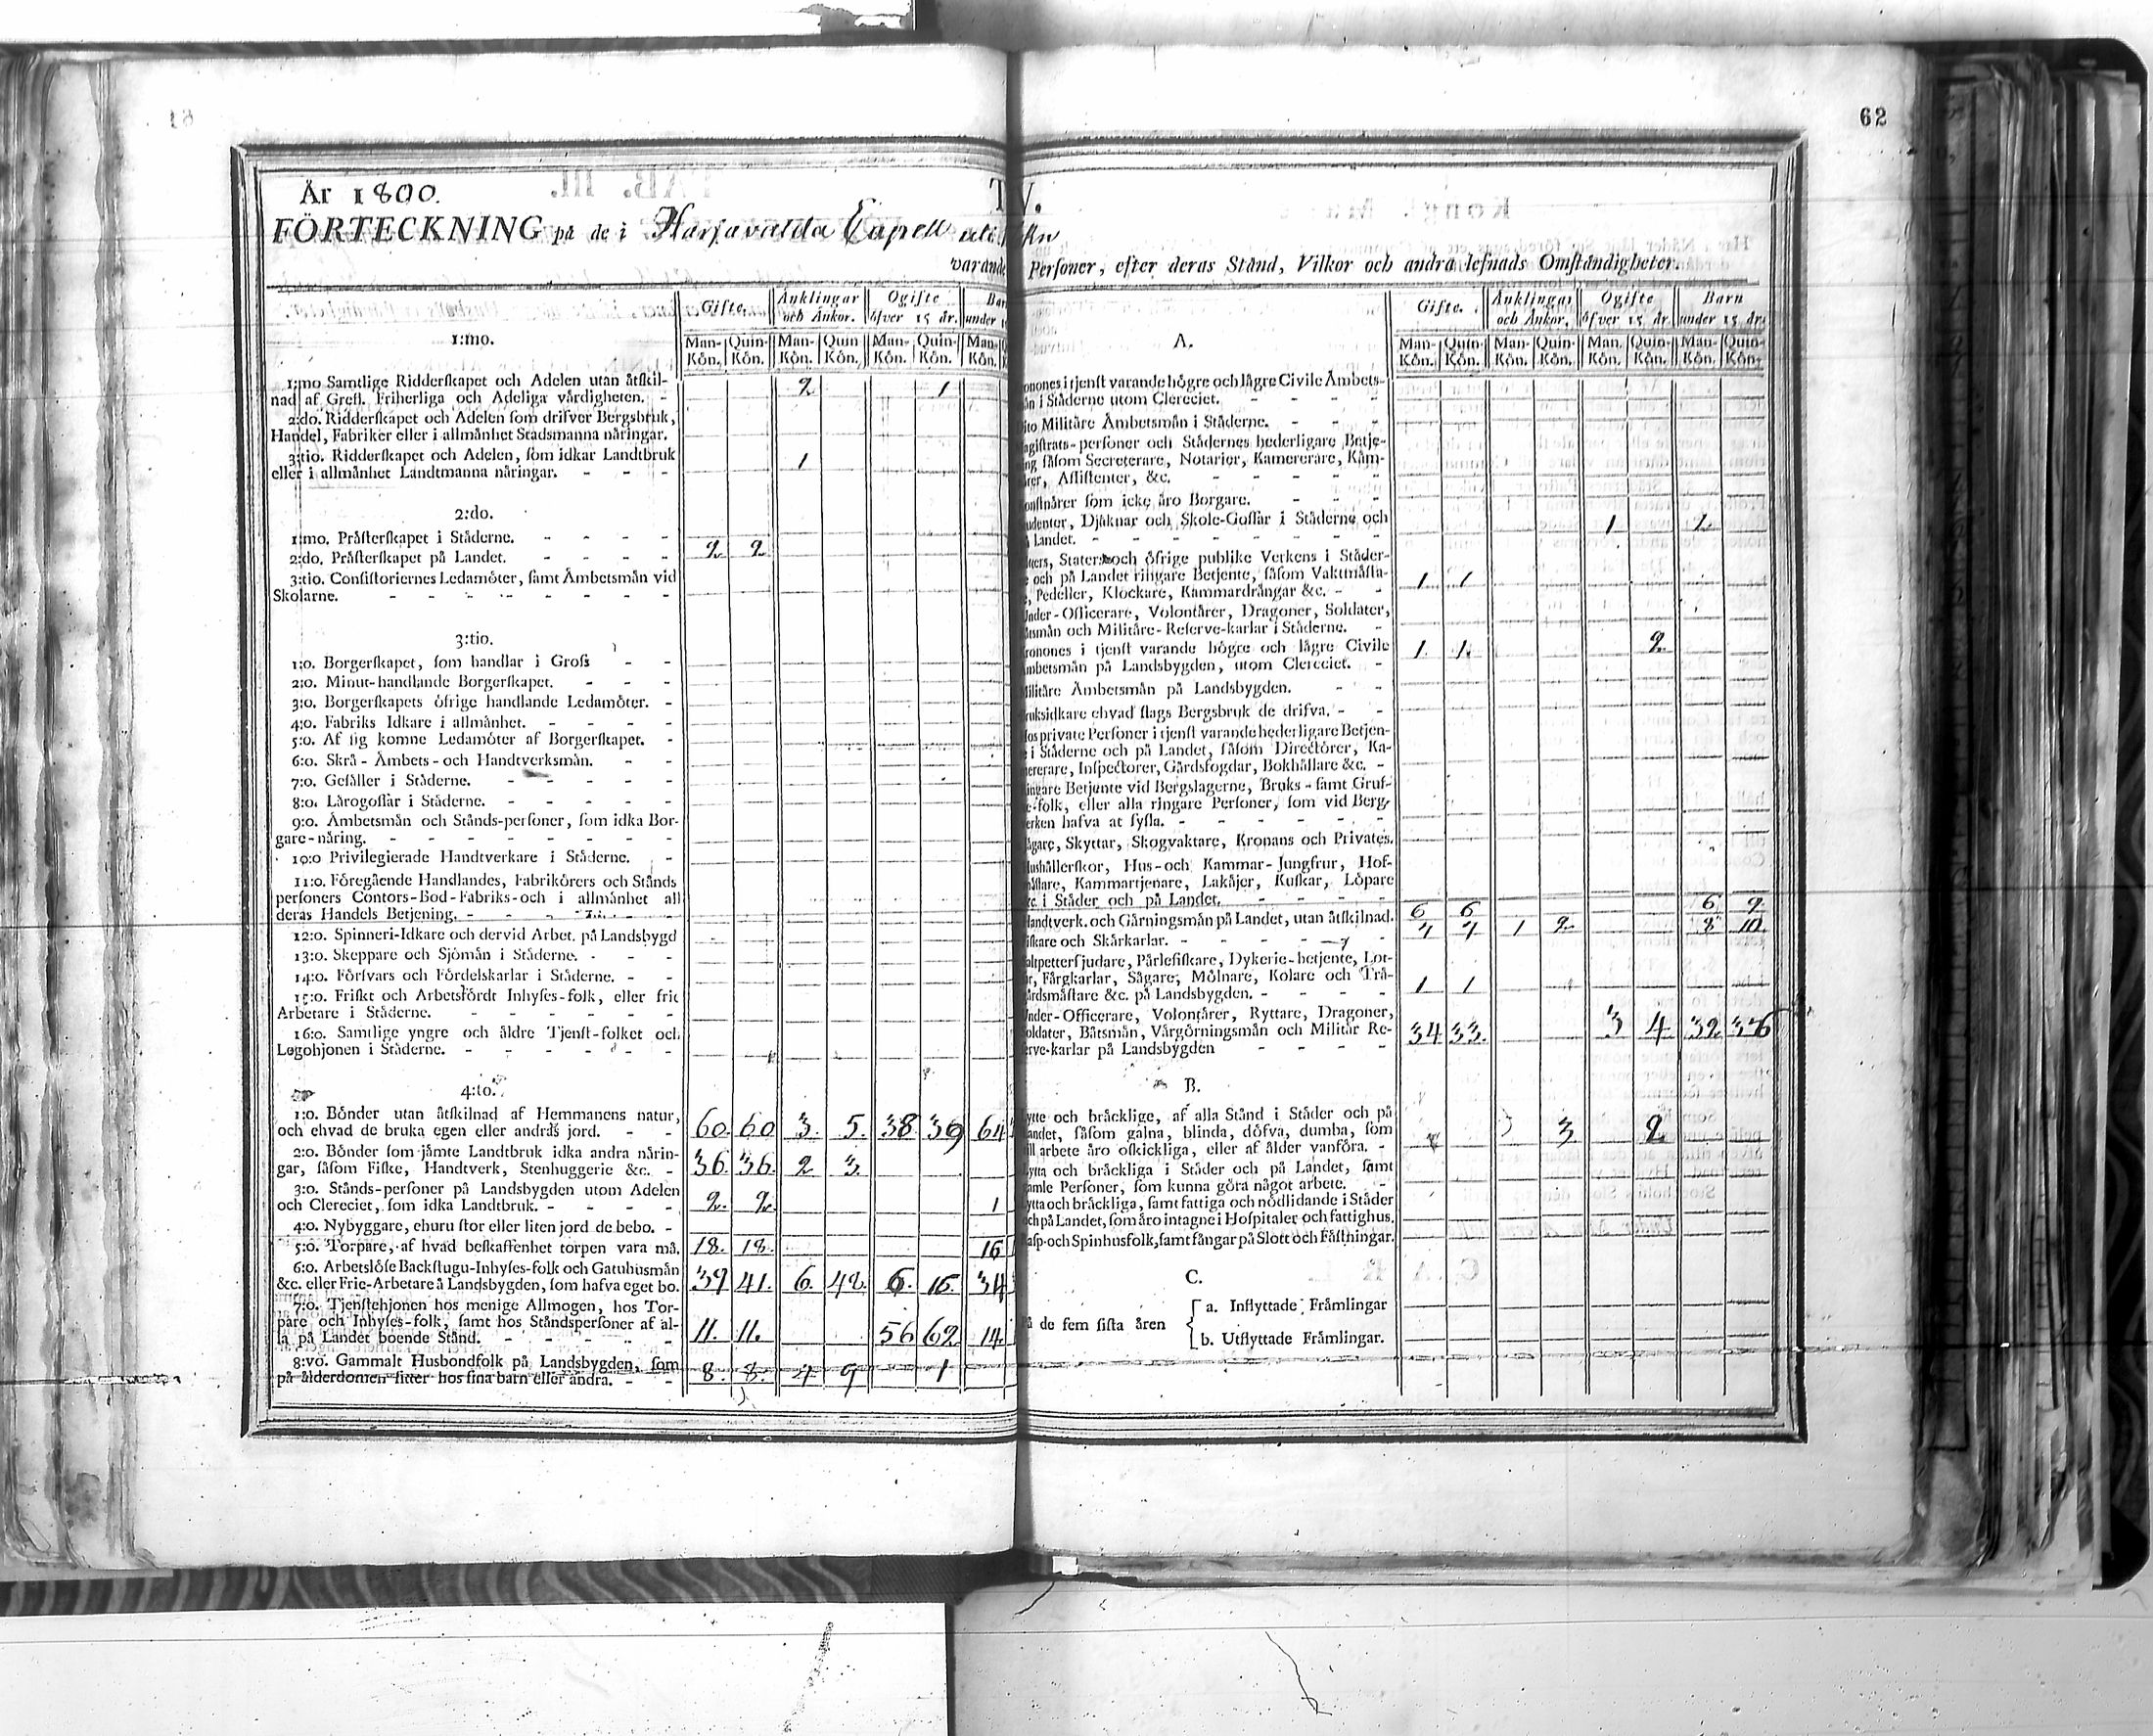 62
År 1800.
T V.
FÖRTECKNING på de i Harjavalda Capell
varande Personer, efter deras Stånd, Vilkor och andra lefnads Omståndigheter.
Gifte. Änklingar och Änkor. Ogifte öfver 15 år. Barn under
Man-Kön. Quin-Kön. Man-Kön. Quin Kön. Man-Kön. Quin-Kön. Man-Kön.
1:mo.
1:mo Samtlige Ridderskapet och Adelen utan åtskil-
nad af Grefl. Friherliga och Adeliga vårdigheten. - 2 1
2:do. Ridderskapet och Adelen som drifver Bergsbruk,
Handel, Fabriker eller i allmånhet Stadsmanna nåringar.
3:tio. Ridderskapet och Adelen, som idkar Landtbruk
eller i allmånhet Landtmanna nåringar. - - - 1
2:do.
1:mo. Pråsterskapet i Ståderne. - - - -
2:do. Pråsterskapet på Landet. - - - - 2 2
3:tio. Consistoriernes Ledamöter, samt Åmbetsmån vid
Skolarne. - - - - - - - -
3:tio.
1:o. Borgerskapet, som handlar i Gross - -
2:o. Minut-handlande Borgerskapet. - - -
3:o. Borgerskapets öfrige handlande Ledamöter. -
4:o. Fabriks Idkare i allmånhet. - - - -
5:o. Af sig komne Ledamöter af Borgerskapet. -
6:o. Skrå-Åmbets-och Handtverksmån. - -
7:o. Gesåller i Ståderne. - - - - -
8:o. Lårogossar i Ståderne. - - - - -
9:o. Åmbetsmån och Stånds-personer, som idka Bor-
gare-nåring. - - - - - - - -
10:o Privilegierade Handtverkare i Ståderne. -
11:o. Föregående Handlandes, Fabrikörers och Stånds
personers Contors-Bod-Fabriks-och i allmånhet all
deras Handels Betjening. - - - - - -
12:o. Spinneri-Idkare och dervid Arbet. på Landsbygd
13:o. Skeppare och Sjömån i Ståderne. - -
14:o. Försvars och Fördelskarlar i Ståderne. - -
15:o. Friske och Arbetsfördt Inhyses-folk, eller frie
Arbetare i Ståderne. - - - - - -
16:o. Samtlige yngre och åldre Tjenst-folket och
Legohjonen i Ståderne. - - - - - -
4:to.
1:o. Bönder utan åtskilnad af Hemmanens natur,
och ehvad de bruka egen eller andras jord. - - 60. 60 3. 5. 38. 39 64
2:o. Bönder som jåmte Landtbruk idka andra nårin-
gar, såsom Fiske, Handtverk, Stenhuggerie &c. - 36. 36. 2 3.
3:o. Stånds-personer på Landsbygden utom Adelen
och Clereciet, som idka Landtbruk. - - - - 2. 2. 1
4:o. Nybyggare, ehuru stor eller liten jord de bebo. -
5:o. Torpare, af hvad beskaffenhet torpen vara må. 18. 18. 16
6:o. Arbetslöse Backstugu-Inhyses-folk och Gatuhusmån
&c. eller Frie-Arbetare å Landsbygden, som hafva eget bo. 39 41. 6. 42. 6. 16. 34
7:o. Tjenstehjonen hos menige Allmogen, hos Tor-
pare och Inhyses-folk, samt hos Ståndspersoner af al-
la på Landet boende Stånd. - - - - - 11. 11. 56 62. 14.
8:vo. Gammalt Husbondfolk på Landsbygden, som
på ålderdomen sitter hos sina barn eller andra. - - 8. 8. 4 9 1
Gifte. Änklingar och Änkor. Ogifte öfver 15 år. Barn under 15 år.
Man-Kön. Quin-Kön. Man-Kön. Quin-Kön. Man. Kön. Quin-Kön. Man-Kön. Quin-Kön.
A.
i tjenst varande högre och lågre Civile Åmbets-
i Ståderne utom Clereciet. - - - -
Militåre Åmbetsmån i Ståderne. - - -
personer och Stådernes hederligare Betje-
såsom Secreterare, Notarier, Kamererare, Kåm-
Assistenter, &c. - - - - -
som icke åro Borgare. - - -
Djåknar och Skole-Gossar i Ståderne och
Landet. - - - - - - - - 1 2
Staters och öfrige publike Verkens i Ståder-
och på Landet ringare Betjente, såsom Vaktmåsta-
Pedeller, Klockare, Kammardrångar &c. - - 1 1
Under-Officerare, Volontårer, Dragoner, Soldater,
och Militåre-Reserve-karlar i Ståderne. -
i tjenst varande högre och lågre Civile
på Landsbygden, utom Clereciet. - 1. 1. 2
Militåre Åmbetsmån på Landsbygden. - -
ehvad slags Bergsbruk de drifva. - -
Hos private Personer i tjenst varande hederligare Betjen-
i Ståderne och på Landet, såsom Directörer, Ka-
Inspectorer, Gårdsfogdar, Bokhållare &c. -
Betjente vid Bergslagerne, Bruks-samt Gruf-
folk, eller alla ringare Personer, som vid Berg-
hafva at syssla. - - - - - -
Skyttar, Skogvaktare, Kronans och Privates.
Hus-och Kammar-Jungfrur, Hof-
Kammartjenare, Lakåjer, Kuskar, Löpare
i Ståder och på Landet. - - - -
Handtverk. och Gårningsmån på Landet, utan åtskilnad. 6 6 6 9
och Skårkarlar. - - - - - 7 7 1 2 8 10
Pårlefiskare, Dykerie-betjente, Lot-
Fårgkarlar, Sågare, Mölnare, Kolare och Trå-
&c. på Landsbygden. - - - - 1 1
Under-Officerare, Volontårer, Ryttare, Dragoner,
Soldater, Båtsmån, Vårgörningsmån och Militår Re-
karlar på Landsbygden - - - - 34 33. 3 4 32 36
B.
och bråcklige, af alla Stånd i Ståder och på
Landet, såsom galna, blinda, döfva, dumba, som
till arbete åro oskickliga, eller af ålder vanföra. - 3 2
och bråckliga i Ståder och på Landet, samt
gamle Personer, som kunna göra något arbete. -
och bråckliga, samt fattiga och nödlidande i Ståder
och på Landet, som åro intagne i Hospitaler och fattighus.
och Spinhusfolk, samt fångar på Slott och Fåstningar.
C.
de fem sista åren
a. Inflyttade Fråmlingar
b. Utflyttade Fråmlingar.